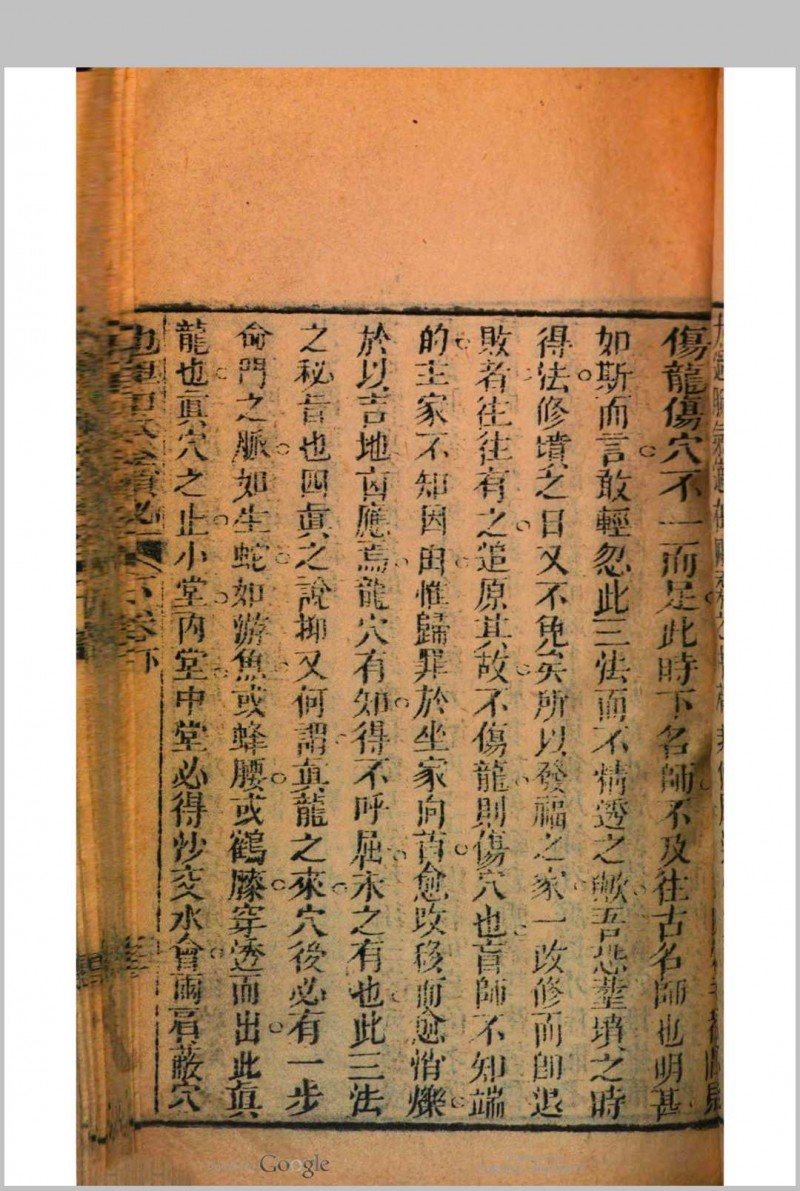 傷龍傷穴不一而足此時下名師不及往古名師也明甚
如斯而言敢輕忽此三法而不精透之歟吾恐塟墳之時
得法修墳之日又不免矣所以發福之家一改修而即退
敗者往往有之追原其故不傷龍則傷穴也盲師不知端
的主家不知因由惟歸罪於坐家向首愈改移而愈悄爍
於以吉地凶應焉龍穴有知得不呼屈未之有也此三法
之秘旨也四眞之說抑又何謂眞龍之來穴後必有一步
命門之脈如生蛇如游魚或蜂腰或鶴膝穿透而出此眞
龍也眞穴之止小堂內堂中堂必得沙交水會兩肩蔽穴
下卷
Google